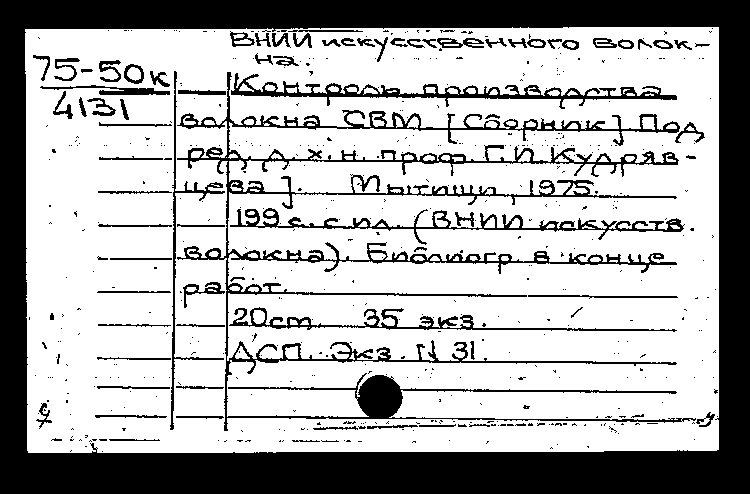 ВНИИ искусственного волок-
на.
75-50к
4131
Контроль производства
волокна СВМ [Сборник] Под
ред. д. х. н. проф. Г.И. Кудряв-
цева]. Мытищи, 1975.
199 с. с ил. (ВНИИ искусств.
волокна). Библиогр в конце
работ.
20 см 35 экз.
ДСП. Экз. N 31.